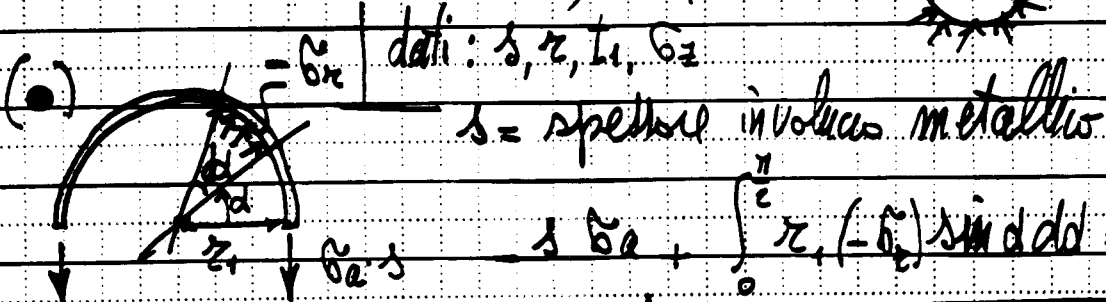 dati : s, r, t₁, σz
(●) = σr
s = spessore involucro metallico
α
dα
r₁ σa · s
s σa + ∫₀^{π/2} r₁ (-σr) sin α dα